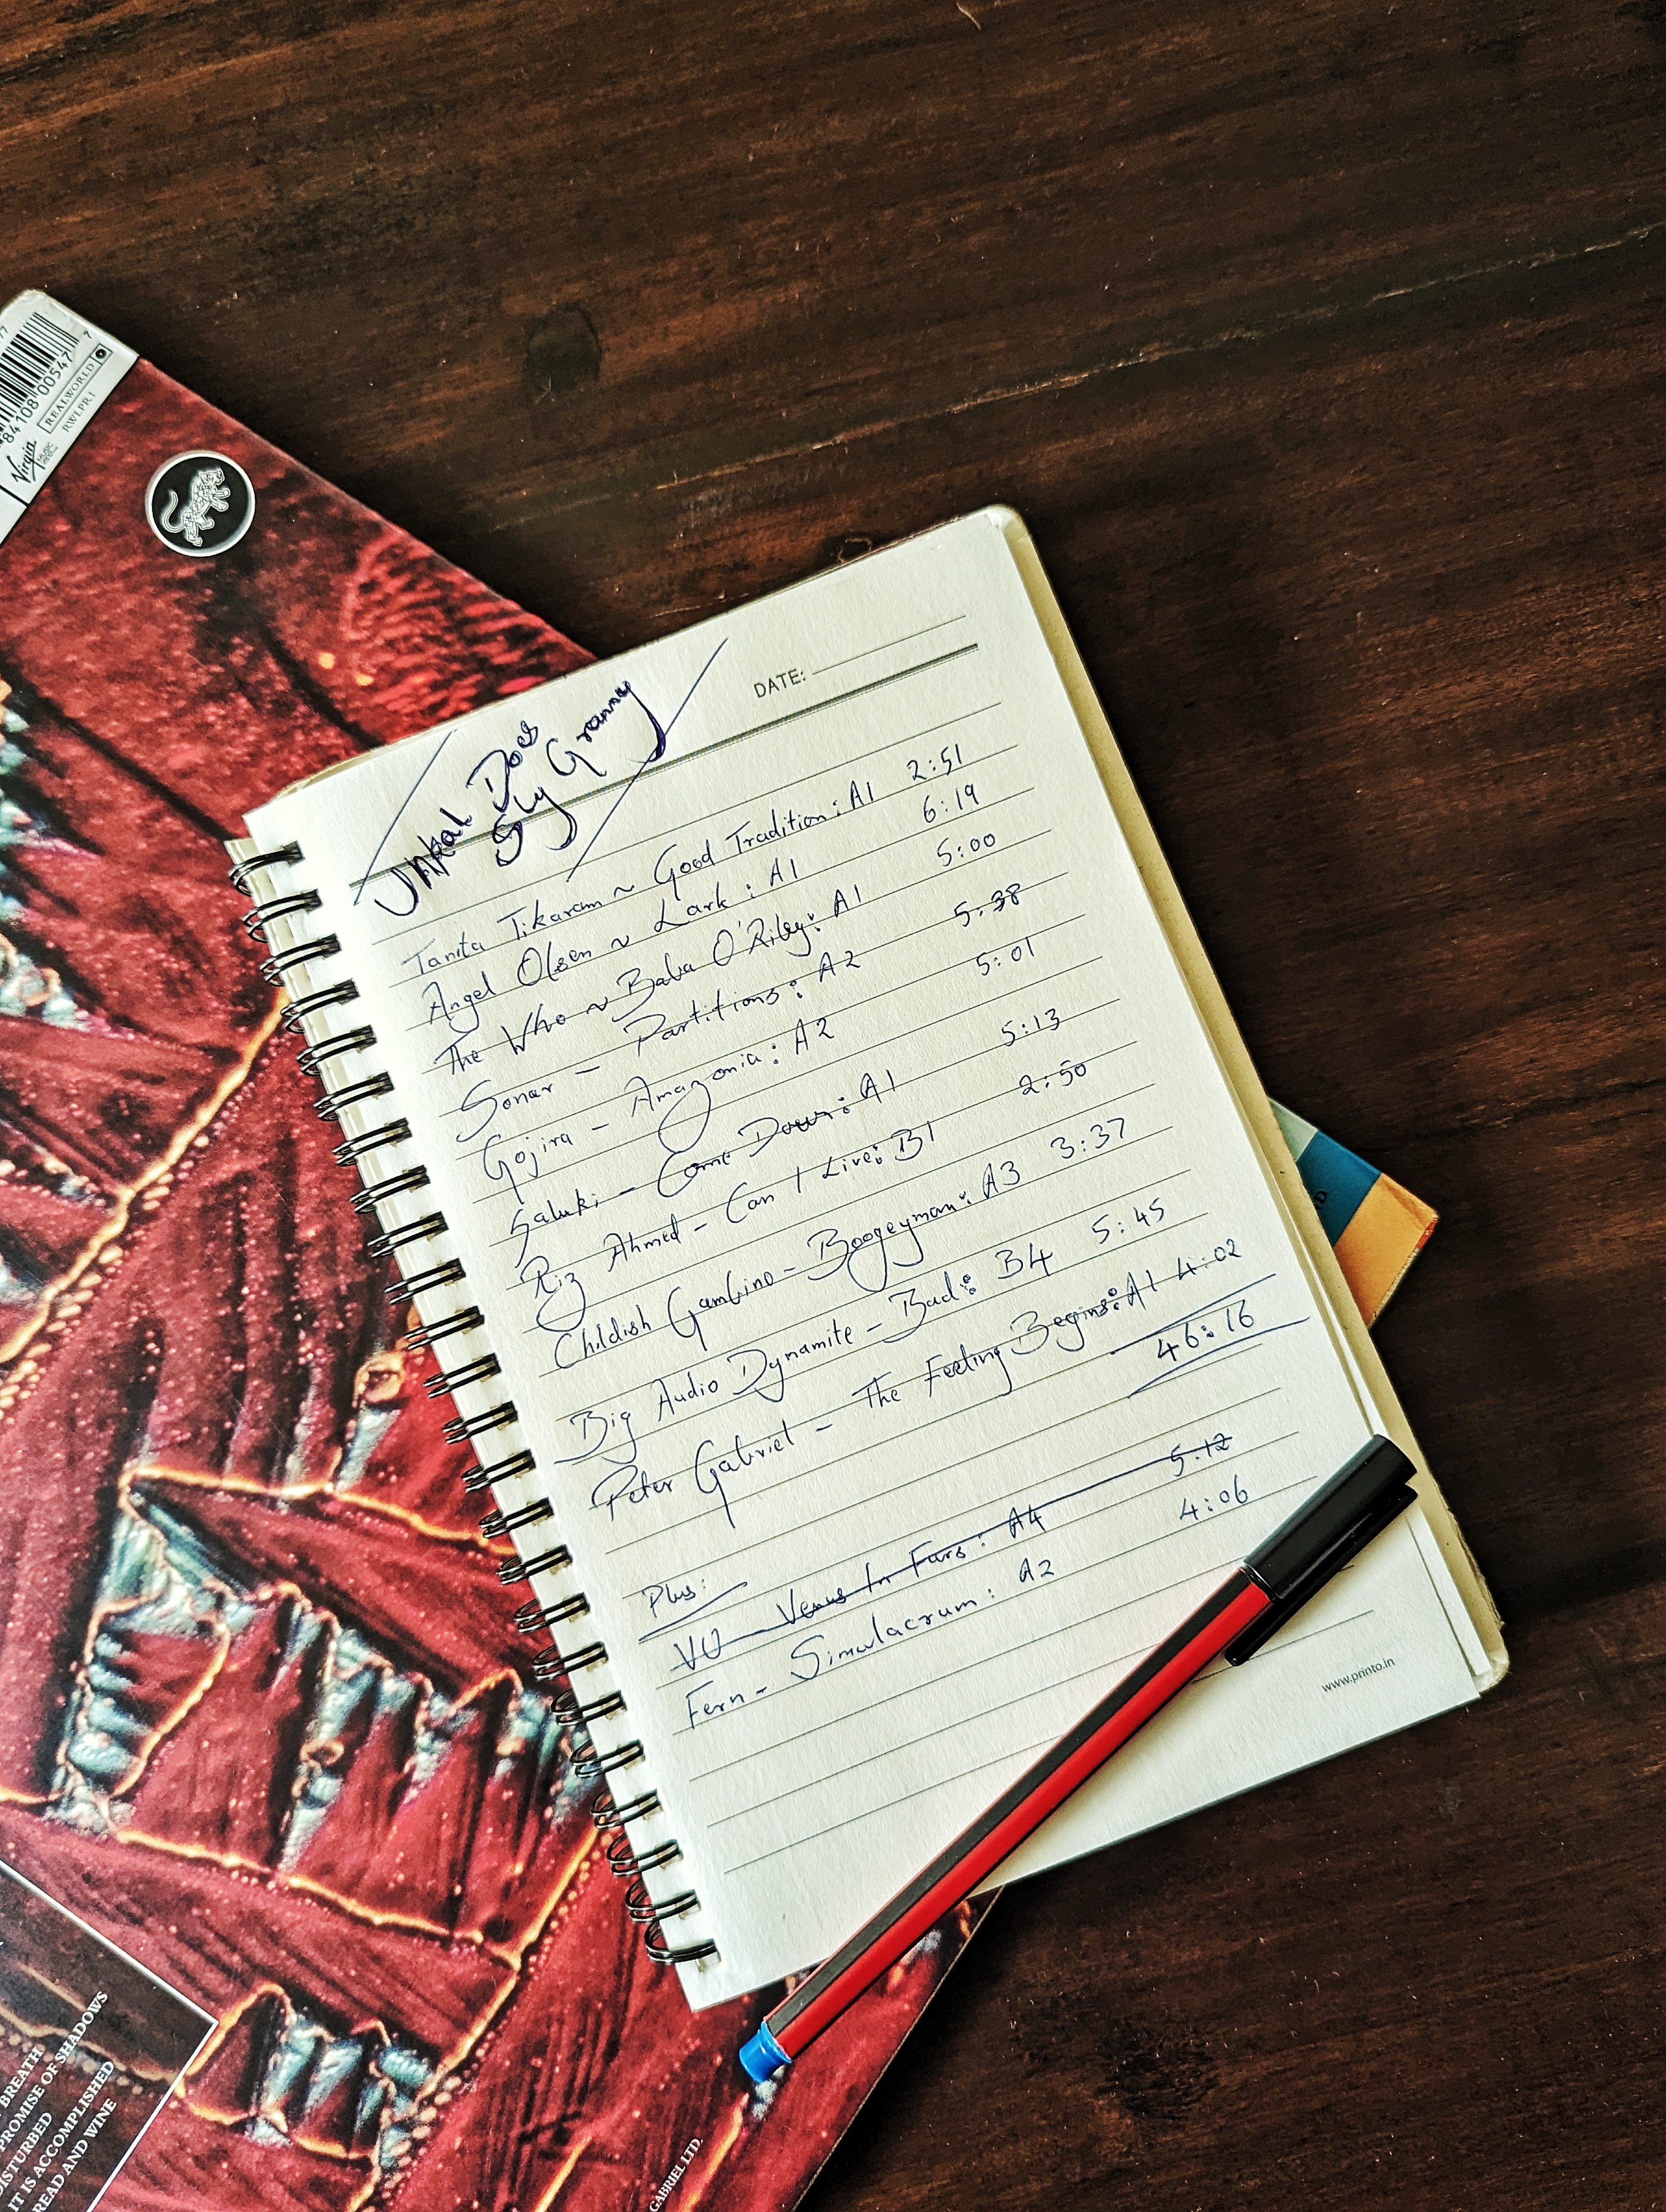 77
84108 00547 7
Virgin
MUSIC
REALWORLD
RWLPR1
DATE:
Does
Sly Granny
Tanita Tikaram ~ Good Tradition: A1 2:51
Angel Olsen ~ Lark: A1 6:19
The Who ~ Baba O'Riley: A1 5:00
Sonar - Partitions: A2 5:38
Gojira - Amazonia: A2 5:01
Saluki - Come Down: A1 5:13
Riz Ahmed - Can I Live: B1 2:50
Childish Gambino - Boogeyman: A3 3:37
Big Audio Dynamite - Bad: B4 5:45
Peter Gabriel - The Feeling Begins: A1 4:02
46:16
Plus:
VU - Venus In Furs: A4 5:12
Fern - Simulacrum: A2 4:06
www.printo.in
BREATH
PROMISE OF SHADOWS
DISTURBED
IT IS ACCOMPLISHED
READ AND WINE
GABRIEL LTD.